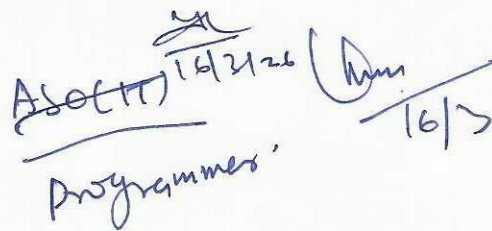 ASO(IT) 16/3/26
16/3
Programmer